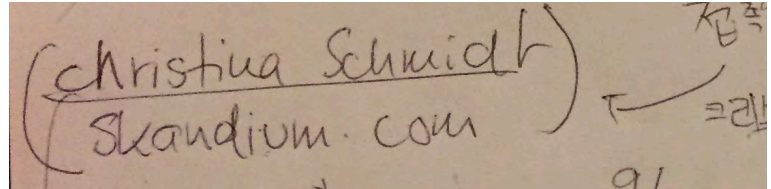 (christina Schmidt
skandium.com)
접촉